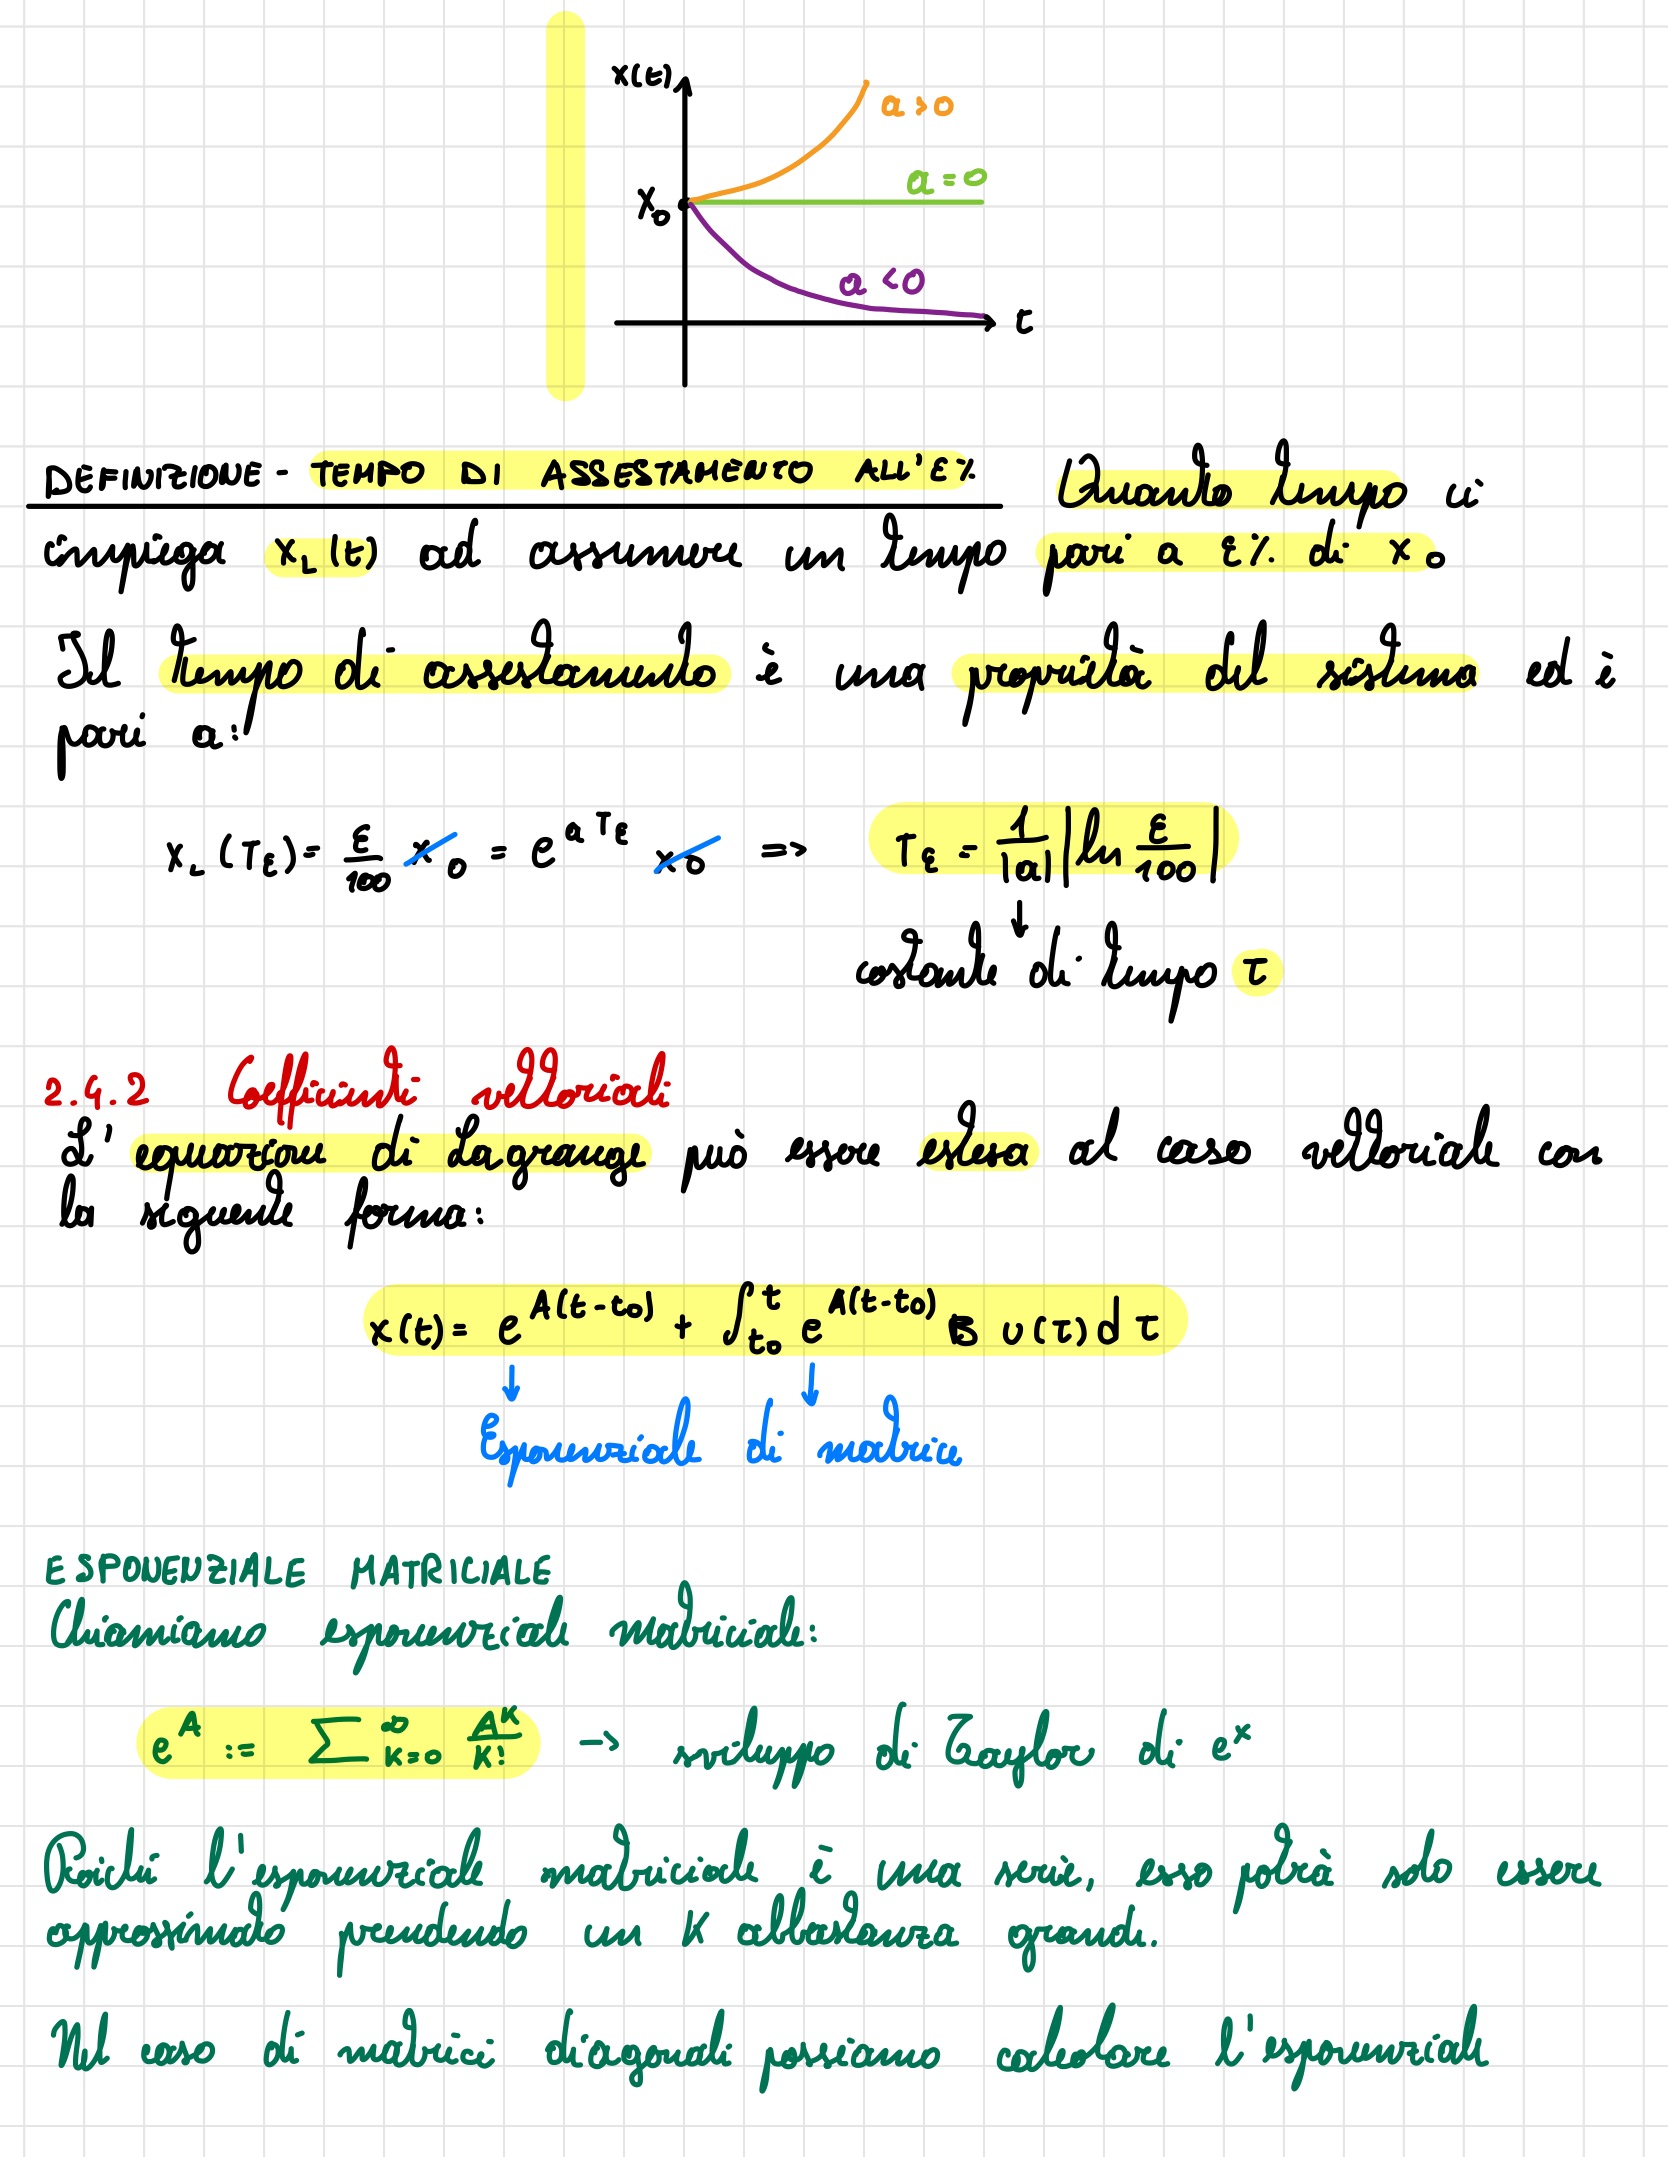 x(t)
a>0
a=0
x₀
a<0
t
DEFINIZIONE - TEMPO DI ASSESTAMENTO ALL'ε% Quanto tempo ci
impiega x_L(t) ad assumere un tempo pari a ε% di x₀
Il tempo di assestamento è una proprietà del sistema ed è
pari a:
x_L(T_ε) = ε/100 x₀ = e^{aT_ε} x₀ => T_ε = 1/|a| |ln ε/100|
↓
costante di tempo τ
2.4.2 Coefficienti vettoriali
L'equazione di Lagrange può essere estesa al caso vettoriale con
la seguente forma:
x(t) = e^{A(t-t₀)} + ∫_{t₀}^{t} e^{A(t-t₀)} B u(τ) dτ
↓ ↓
Esponenziale di matrice
ESPONENZIALE MATRICIALE
Chiamiamo esponenziale matriciale:
e^A := ∑_{K=0}^{∞} A^K/K! -> sviluppo di Taylor di e^x
Poiché l'esponenziale matriciale è una serie, esso potrà solo essere
approssimato prendendo un K abbastanza grande.
Nel caso di matrici diagonali possiamo calcolare l'esponenziale